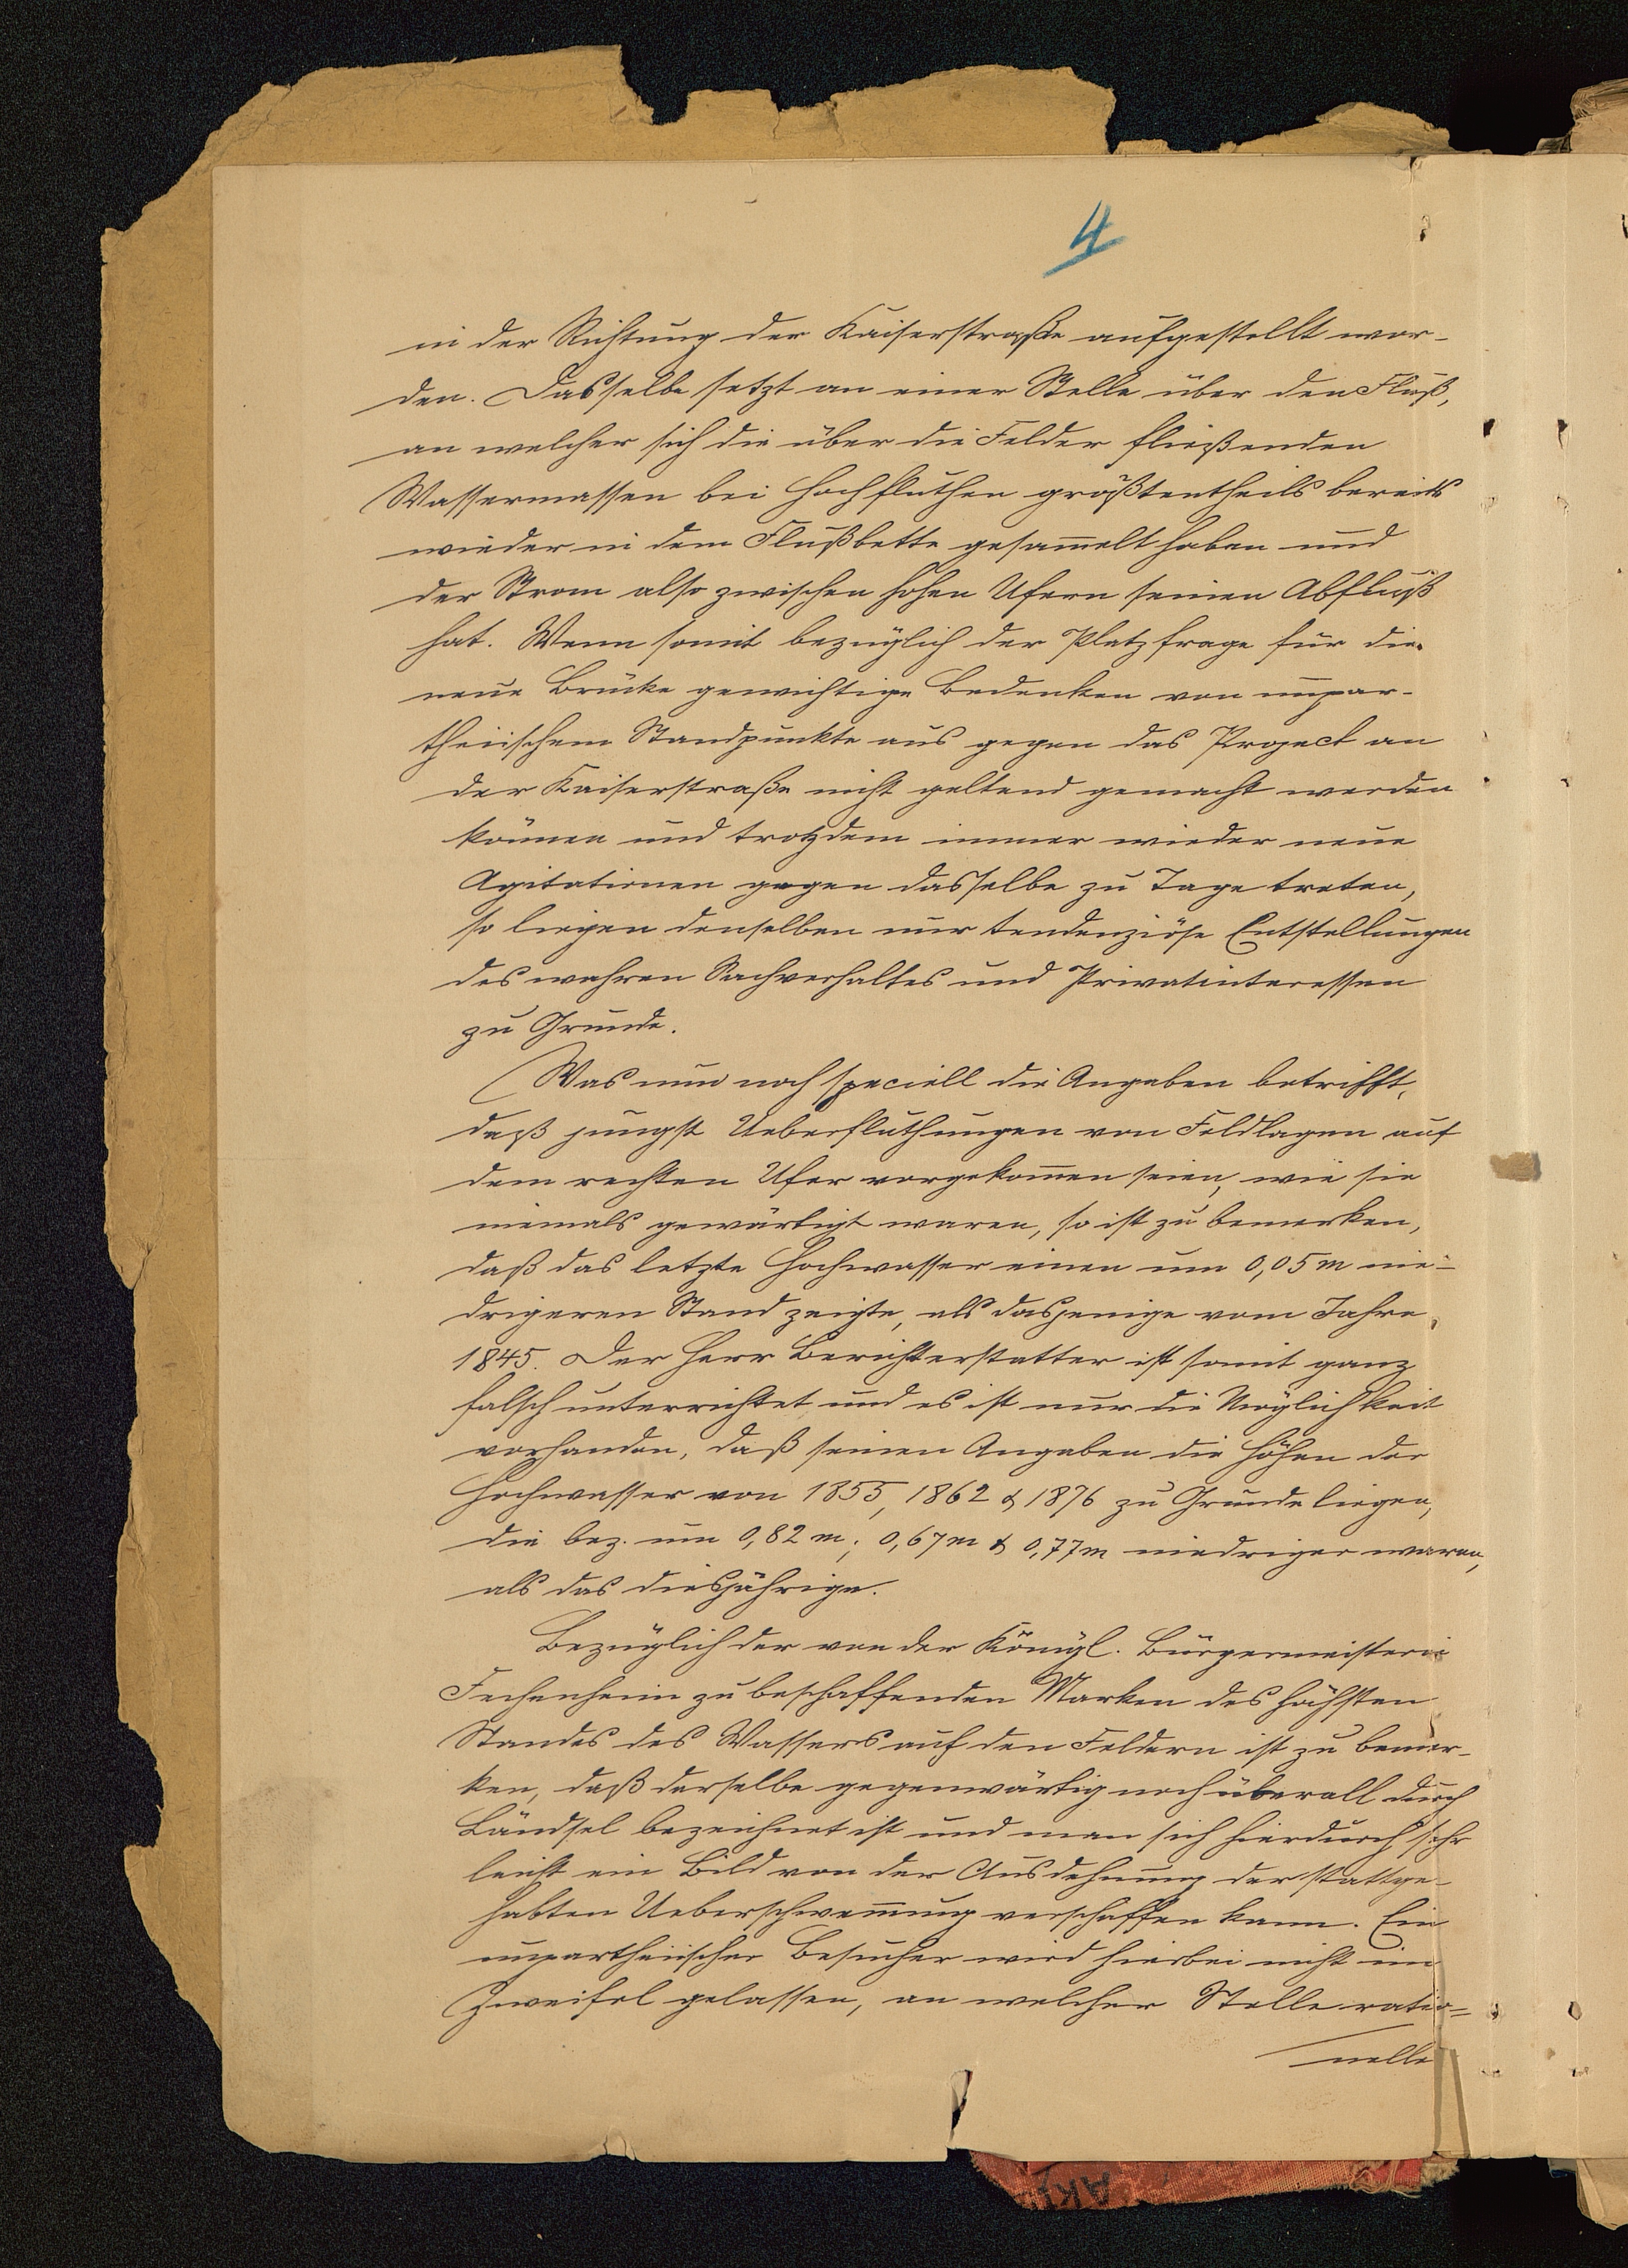 4
in der Richtung der Kaiserstraße aufgestellt wor-
den. Dasselbe setzt an einer Stelle über den Fluß,
an welcher sich die über die Felder fließenden
Wassermassen bei Hochfluthen größtentheils bereits
wieder in dem Flußbette gesammelt haben und
der Strom also zwischen hohen Ufern seinen Abfluß
hat. Wenn somit bezüglich der Platzfrage für die
neue Brücke gewichtige Bedenken von unpar-
theiischem Standpunkte aus gegen das Project an
der Kaiserstraße nicht geltend gemacht werden
können und trotzdem immer wieder neue
Agitationen gegen dasselbe zu Tage treten,
so liegen denselben nur tendenziöse Entstellungen
des wahren Sachverhaltes und Privatinteressen
zu Grunde.
Was nun noch speciell die Angaben betrifft,
daß jüngst Ueberfluthungen von Feldlagen auf
dem rechten Ufer vorgekommen seien, wie sie
niemals gewärtigt waren, so ist zu bemerken,
daß das letzte Hochwasser einen um 0,05 m nie-
drigeren Stand zeigte, als dasjenige vom Jahre
1845. Der Herr Berichterstatter ist somit ganz
falsch unterrichtet und es ist nur die Möglichkeit
vorhanden, daß seinen Angaben die Höhen der
Hochwasser von 1855, 1862 & 1876 zu Grunde liegen,
die bez. um 0,82 m; 0,67 m & 0,77 m niedriger waren,
als das diesjährige.
Bezüglich der von der Königl. Bürgermeisterei
Fechenheim zu beschaffenden Marken des höchsten
Standes des Wassers auf den Feldern ist zu bemer-
ken, daß derselbe gegenwärtig noch überall durch
Ländsel bezeichnet ist und man sich hierdurch sehr
leicht ein Bild von der Ausdehnung der stattge-
habten Ueberschwemmung verschaffen kann. Ein
unpartheiischer Besucher wird hierbei nicht im
Zweifel gelassen, an welcher Stelle ratio-
nelle
AK